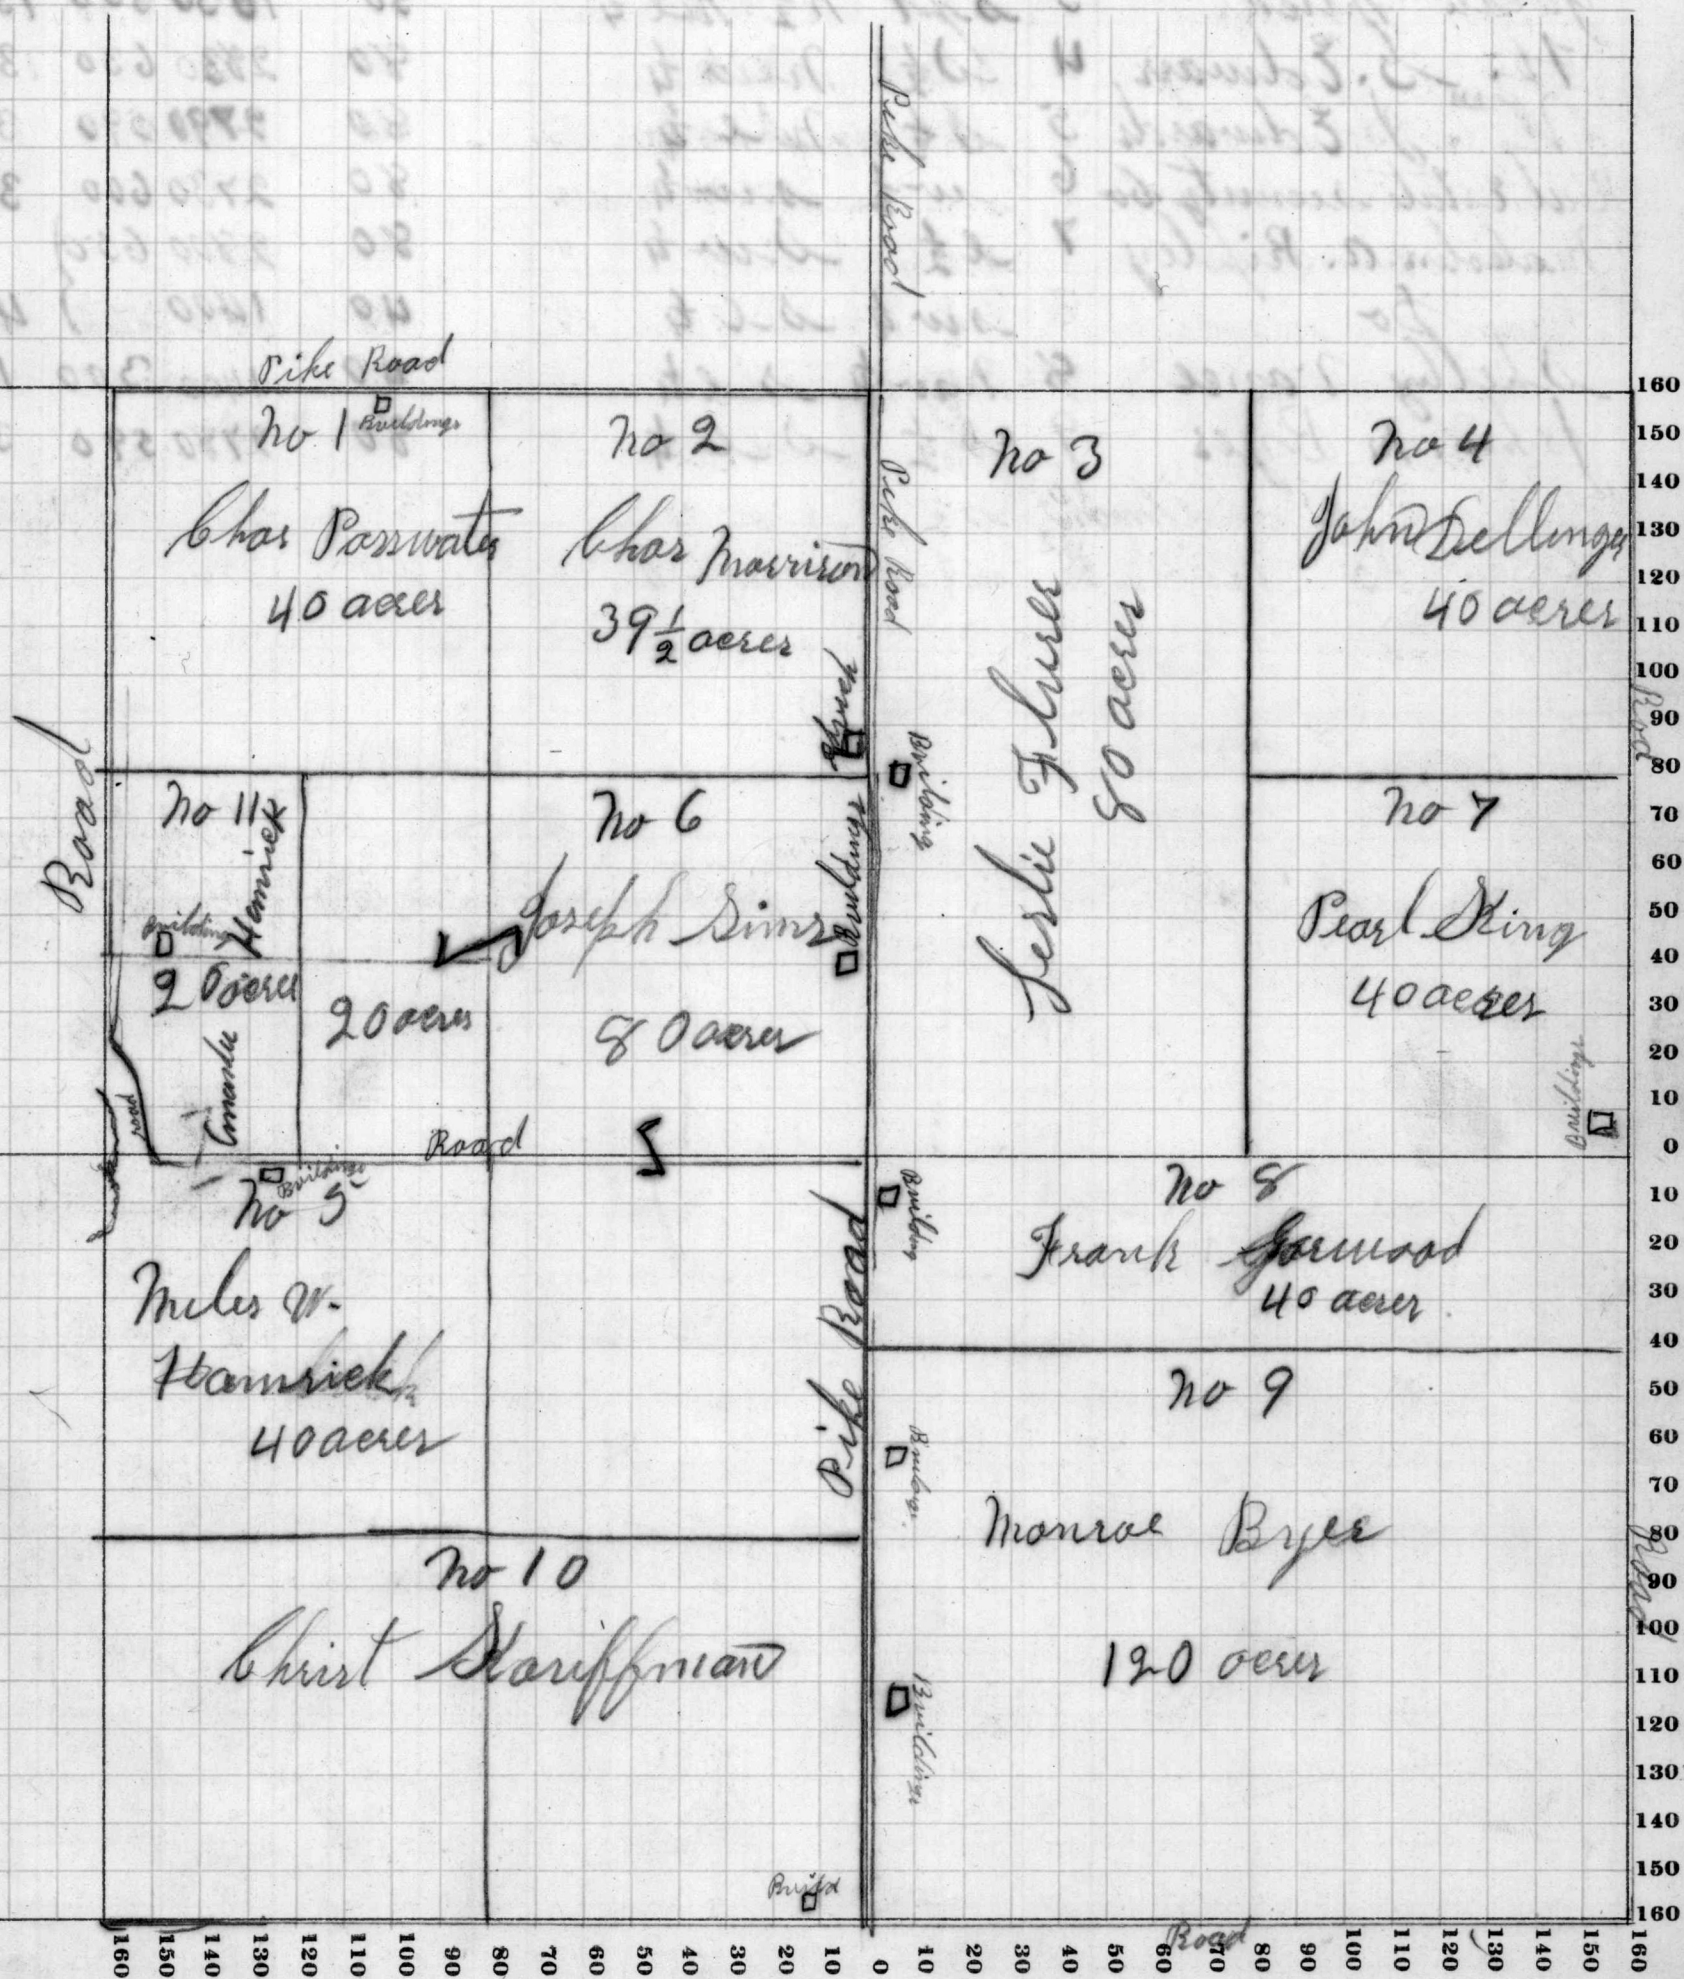 Pike Road
Pike Road
No 1
Buildings
Chas Passwater
40 acres
No 2
Chas Morrison
39 1/2 acres
Church
Pike Road
No 3
Leslie
80 acres
Building
No 4
John Dellinger
40 acres
Road
Road
No 11
Hamrick
Building
20 acres
road
20 acres
No 6
Joseph Sims
80 acres
Buildings
No 7
Pearl King
40 acres
Buildings
Road
Buildings
No 5
Miles W.
Hamrick
40 acres
Pike Road
No 8
Frank Gorwood
40 acres
Building
No 9
Monroe Byer
120 acres
Buildings
Buildings
Road
No 10
Christ
Build
Road
160
150
140
130
120
110
100
90
80
70
60
50
40
30
20
10
0
10
20
30
40
50
60
70
80
90
100
110
120
130
140
150
160
160 150 140 130 120 110 100 90 80 70 60 50 40 30 20 10 0 10 20 30 40 50 60 70 80 90 100 110 120 130 140 150 160